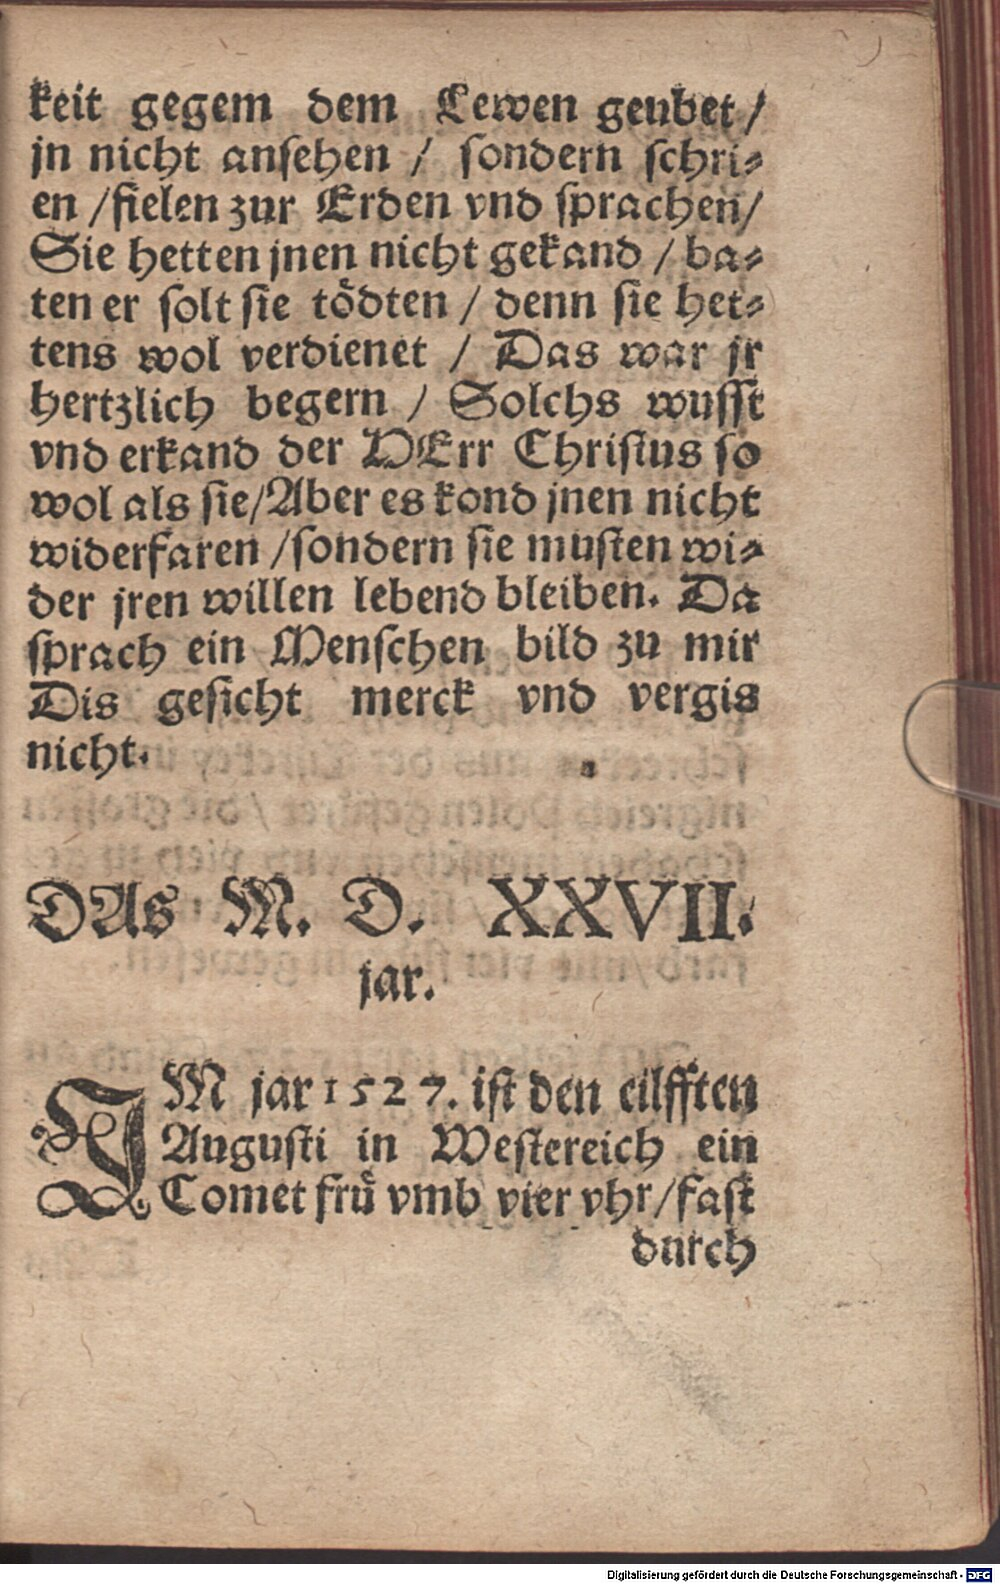 keit gegem dem Lewen geubet /
jn nicht ansehen / sondern schri-
en / fielen zur Erden vnd sprachen /
Sie hetten jnen nicht gekand / ba-
ten er solt sie tödten / denn sie het-
tens wol verdienet / Das war jr
hertzlich begern / Solchs wusst
vnd erkand der HErr Christus so
wol als sie / Aber es kond jnen nicht
widerfaren / sondern sie musten wi-
der jren willen lebend bleiben. Da
sprach ein Menschen bild zu mir
Dis gesicht merck vnd vergis
nicht.
DAs M. D. XXVII.
jar.
IM jar 1527. ist den eilfften
Augusti in Westereich ein
Comet frü vmb vier vhr / fast
durch
Digitalisierung gefördert durch die Deutsche Forschungsgemeinschaft - DFG